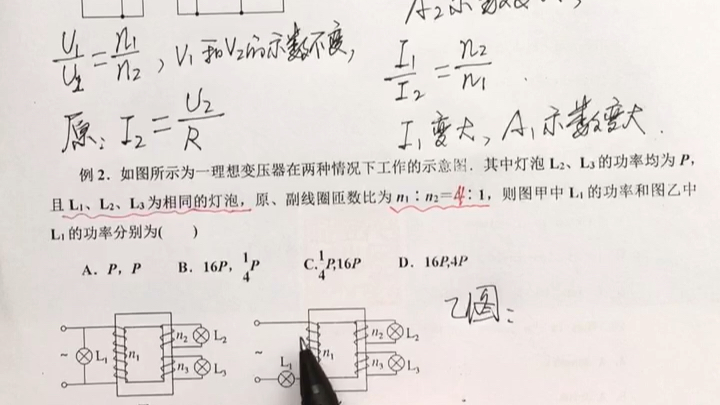 A₂示数
U₁/U₂=n₁/n₂,V₁和V₂的示数不变,
I₁/I₂=n₂/n₁.
原:I₂=U₂/R
I₁变大,A₁示数变大.
例2.如图所示为一理想变压器在两种情况下工作的示意图.其中灯泡L₂、L₃的功率均为P,
且L₁、L₂、L₃为相同的灯泡,原、副线圈匝数比为n₁∶n₂=4∶1,则图甲中L₁的功率和图乙中
L₁的功率分别为( )
A.P,P B.16P,1/4P C.1/4P,16P D.16P,4P
乙图:
~ L₁ n₁ n₂ L₂ n₃ L₃
~ L₁ n₁ n₂ L₂ n₃ L₃